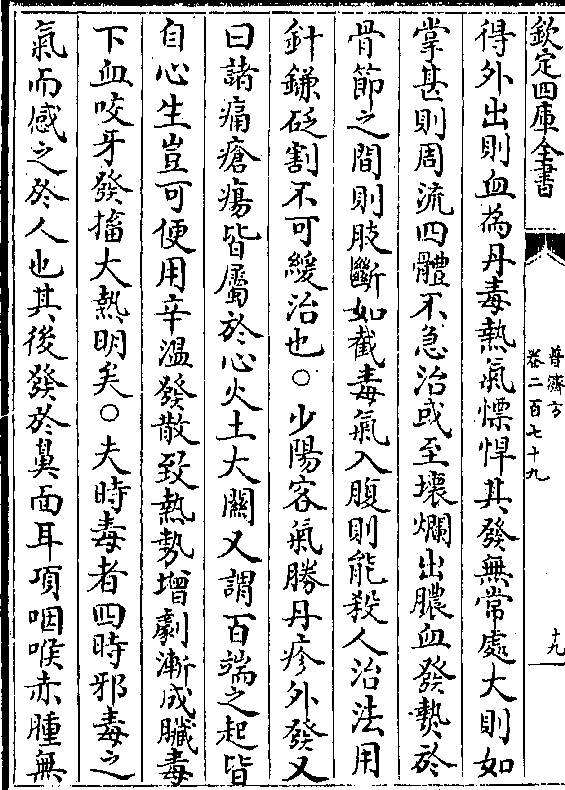 欽定四庫全書
普濟方
卷二百七十九
十九
得外出則血為丹毒熱氣慓悍其發無常處大則如
掌甚則周流四體不急治或至壞爛出膿血發㷅於
骨節之間則肢斷如截毒氣入腹則能殺人治法用
針鎌砭割不可緩治也○少陽客氣勝丹疹外發又
曰諸痛瘡瘍皆屬於心火土大闗又謂百端之起皆
自心生豈可便用辛溫發散致熱勢增劇漸成臟毒
下血咬牙發搐大熱明矣○夫時毒者四時邪毒之
氣而感之於人也其後發於鼻面耳項咽喉赤腫無